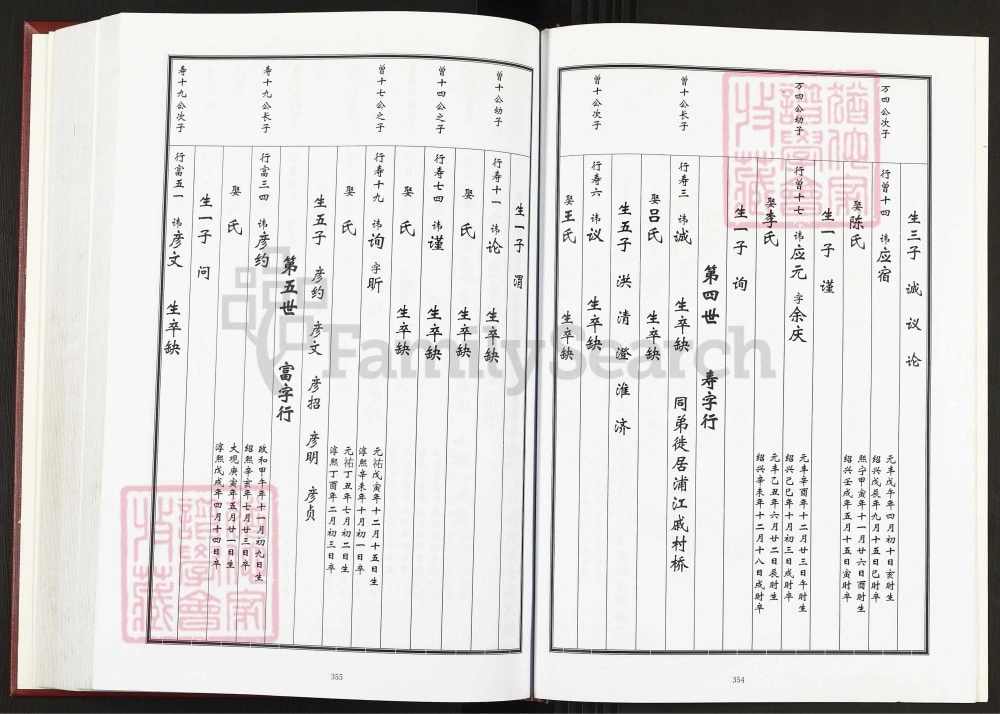 生三子 诚 议 论
万四公次子
行曾十四 讳应宿
元丰戊午年四月初十日亥时生
绍兴戊辰年九月十五日巳时卒
娶陈氏
熙宁甲寅年十一月廿六日酉时生
绍兴壬戌年五月十五日寅时卒
生一子 谨
万四公幼子
行曾十七 讳应元 字余庆
元丰辛酉年十二月廿三日午时生
绍兴己巳年十月初三日戌时卒
娶李氏
元丰乙丑年六月廿二日辰时生
绍兴辛未年十二月十八日戌时卒
生一子 询
第四世 寿字行
曾十公长子
行寿三 讳诚 生卒缺 同弟徙居浦江戚村桥
娶吕氏 生卒缺
生五子 洪 清 澄 淮 济
曾十公次子
行寿六 讳议 生卒缺
娶王氏 生卒缺
354
生一子 渭
曾十公幼子
行寿十一 讳论 生卒缺
娶 氏 生卒缺
曾十四公之子
行寿七四 讳谨 生卒缺
娶 氏 生卒缺
曾十七公之子
行寿十九 讳询 字昕
元祐戊寅年十二月十五日生
淳熙辛未年十月初一日卒
娶 氏
元祐丁丑年七月初二日生
淳熙丁酉年二月初三日卒
生五子 彦约 彦文 彦招 彦明 彦贞
第五世 富字行
寿十九公长子
行富三四 讳彦约
政和甲午年十一月初九日生
绍熙辛亥年七月廿三日卒
娶 氏
大观庚寅年五月廿一日生
淳熙戊戌年四月十四日卒
生一子 问
寿十九公次子
行富五一 讳彦文 生卒缺
355
FamilySearch